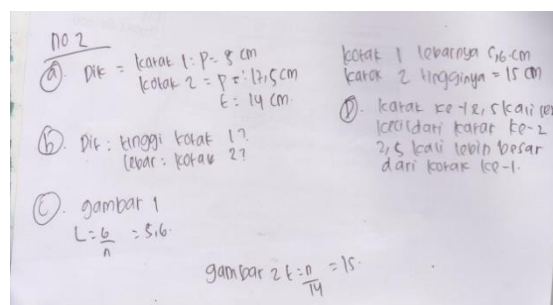 no 2
(a). Dik = kotak 1 : P = 8 cm
kotak 2 = P = 17,5 cm
t = 14 cm.
(b). Dit : tinggi kotak 1?
lebar : kotak 2?
(c). gambar 1
L = 6/n = 5,6.
gambar 2 t = n/14 = 15.
kotak 1 lebarnya 5,6 cm
kotak 2 tingginya = 15 cm
(D). kotak ke-1 2,5 kali
kecil dari kotak ke-2
2,5 kali lebih besar
dari kotak ke-1.